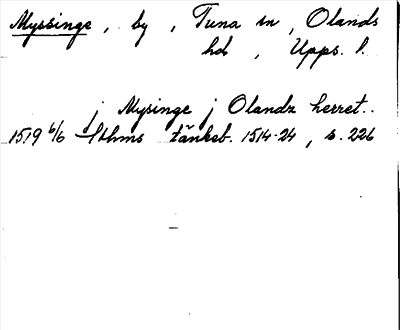 Myssinge, by, Tuna sn, Olands
hd, Upps. l.
j Mysinge j Olandz herret..
1519 6/6 Sthms tänkeb. 1514-24, s. 226